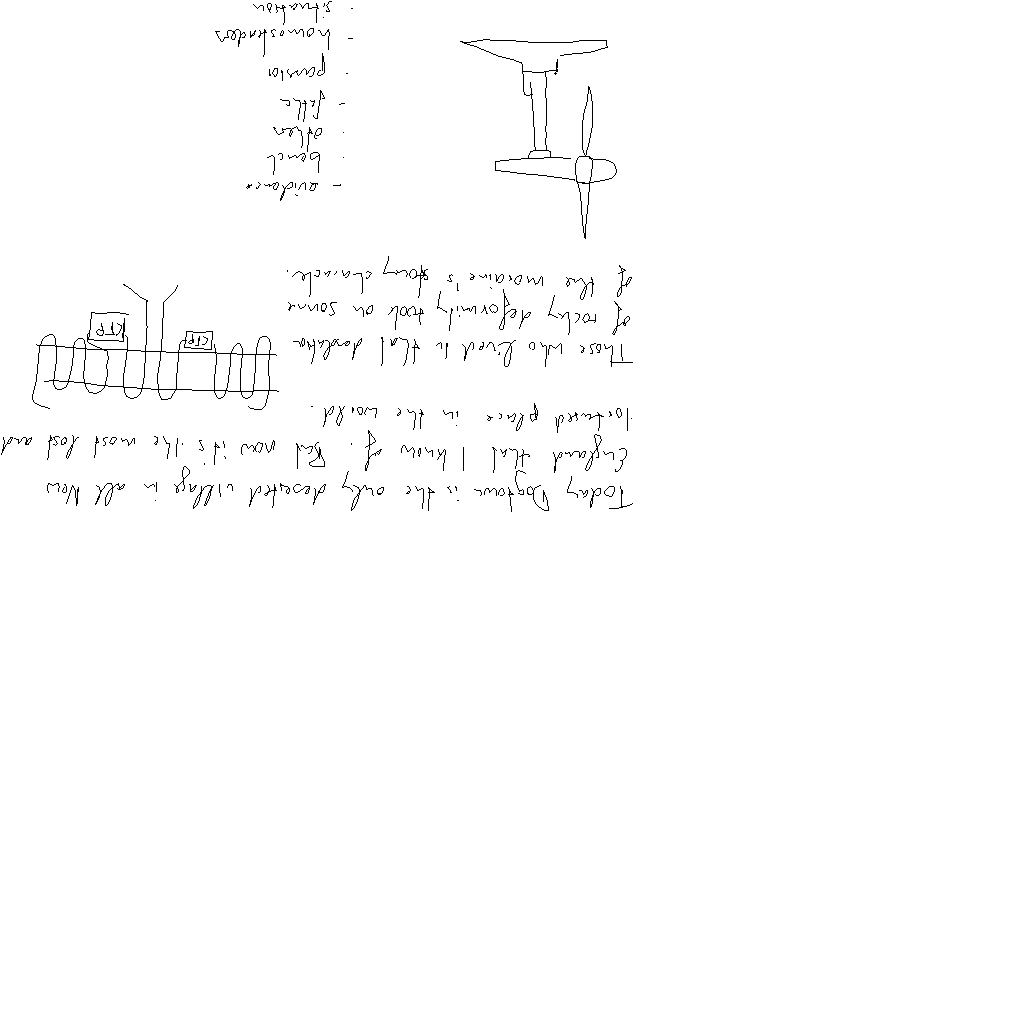 Today Dogtown is the only deserted village in all New
England that I know of. But now it's the most lost and
tortured place in the world.
Those who lived in that desolation
of rocky deformity took on some
of the moraine's stony character.
KTP
KTP
- evidence
· bench
· often
- homesteaders
· situation